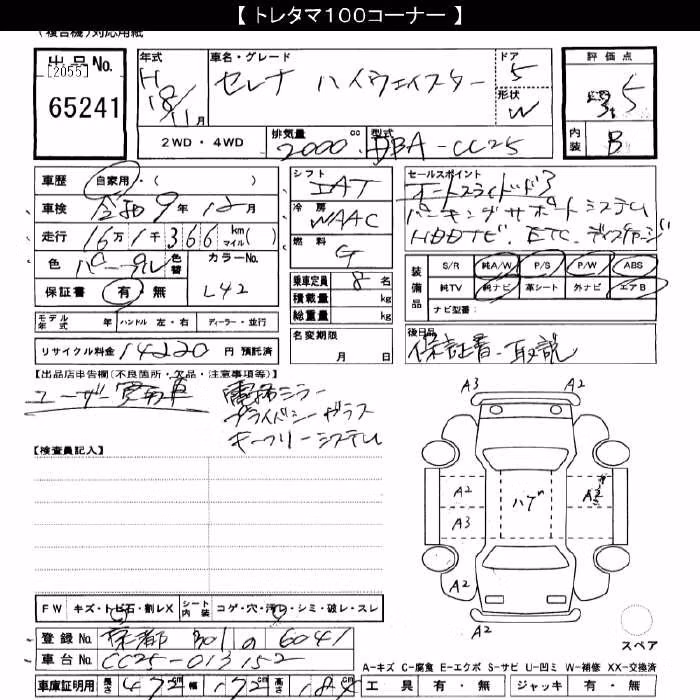 【 トレタマ１００コーナー 】
(複合機)対応用紙
出品No.
[2055]
65241
年式
H
18/11月
車名・グレード
セレナ ハイウェイスター
ドア
5
形状
W
評価点
3.5
内装
B
2WD・4WD
排気量
2000 cc
型式
DBA-CC25
車歴 自家用・( )
車検 令和9年12月
走行 16万1千366 km マイル( )
色 パープル 色替 カラーNo.
保証書 有 無 L42
モデル年式 年 ハンドル 左・右 ディーラー・並行
リサイクル料金 14220 円 預託済
シフト
IAT
冷房
WAAC
燃料
G
乗車定員 8 名
積載量 kg
総重量 kg
名変期限
月 日
セールスポイント
オートスライドドア
パーキングサポートシステム
HDDTV.ETC.ディスチャージ
装備品
S/R 純A/W P/S P/W ABS
純TV 純ナビ 革シート 外ナビ エアB
ナビ型番:
後日品
保証書・取説
【出品店申告欄(不良箇所・欠品・注意事項等)】
ユーザー買取車
電格ミラー
プライバシーガラス
キーフリーシステム
【検査員記入】
A3 A2
A2 ハゲ
A3
A2 A2
A2
スペア
FW キズ・トビ石・割レX シート内装 コゲ・穴・汚レ・シミ・破レ・スレ
登録No. 京都 301 の 6041
車台No. CC25-013152
車庫証明用 長さ 472cm 幅 172cm 高さ 184cm
A-キズ C-腐食 E-エクボ S-サビ U-凹ミ W-補修 XX-交換済
工具 有・無 ジャッキ 有・無